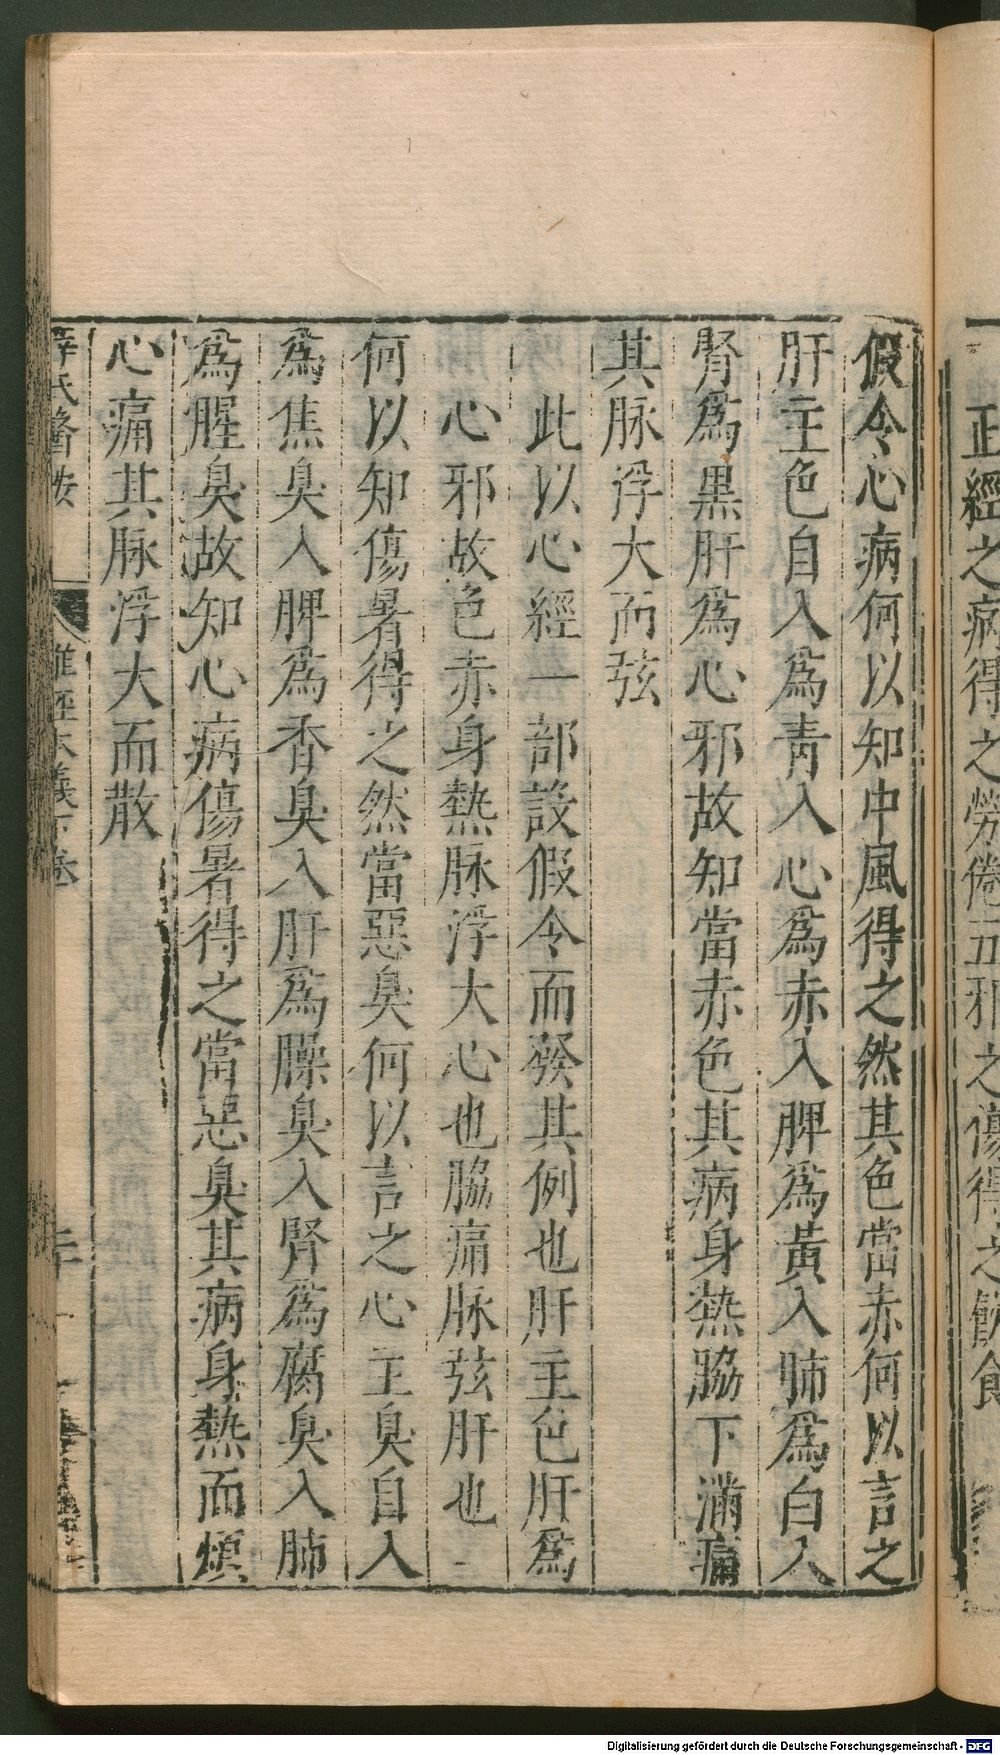 正經之病得之勞倦五邪之傷得之飲食
假令心病何以知中風得之然其色當赤何以言之
肝主色自入為青入心為赤入脾為黃入肺為白入
腎為黑肝為心邪故知當赤色其病身熱脇下滿痛
其脉浮大而弦
此以心經一部設假令而發其例也肝主色肝為
心邪故色赤身熱脉浮大心也脇痛脉弦肝也
何以知傷暑得之然當惡臭何以言之心主臭自入
為焦臭入脾為香臭入肝為臊臭入腎為腐臭入肺
為腥臭故知心病傷暑得之當惡臭其病身熱而煩
心痛其脉浮大而散
薛氏醫按
難經本義下卷
Digitalisierung gefördert durch die Deutsche Forschungsgemeinschaft - DFG